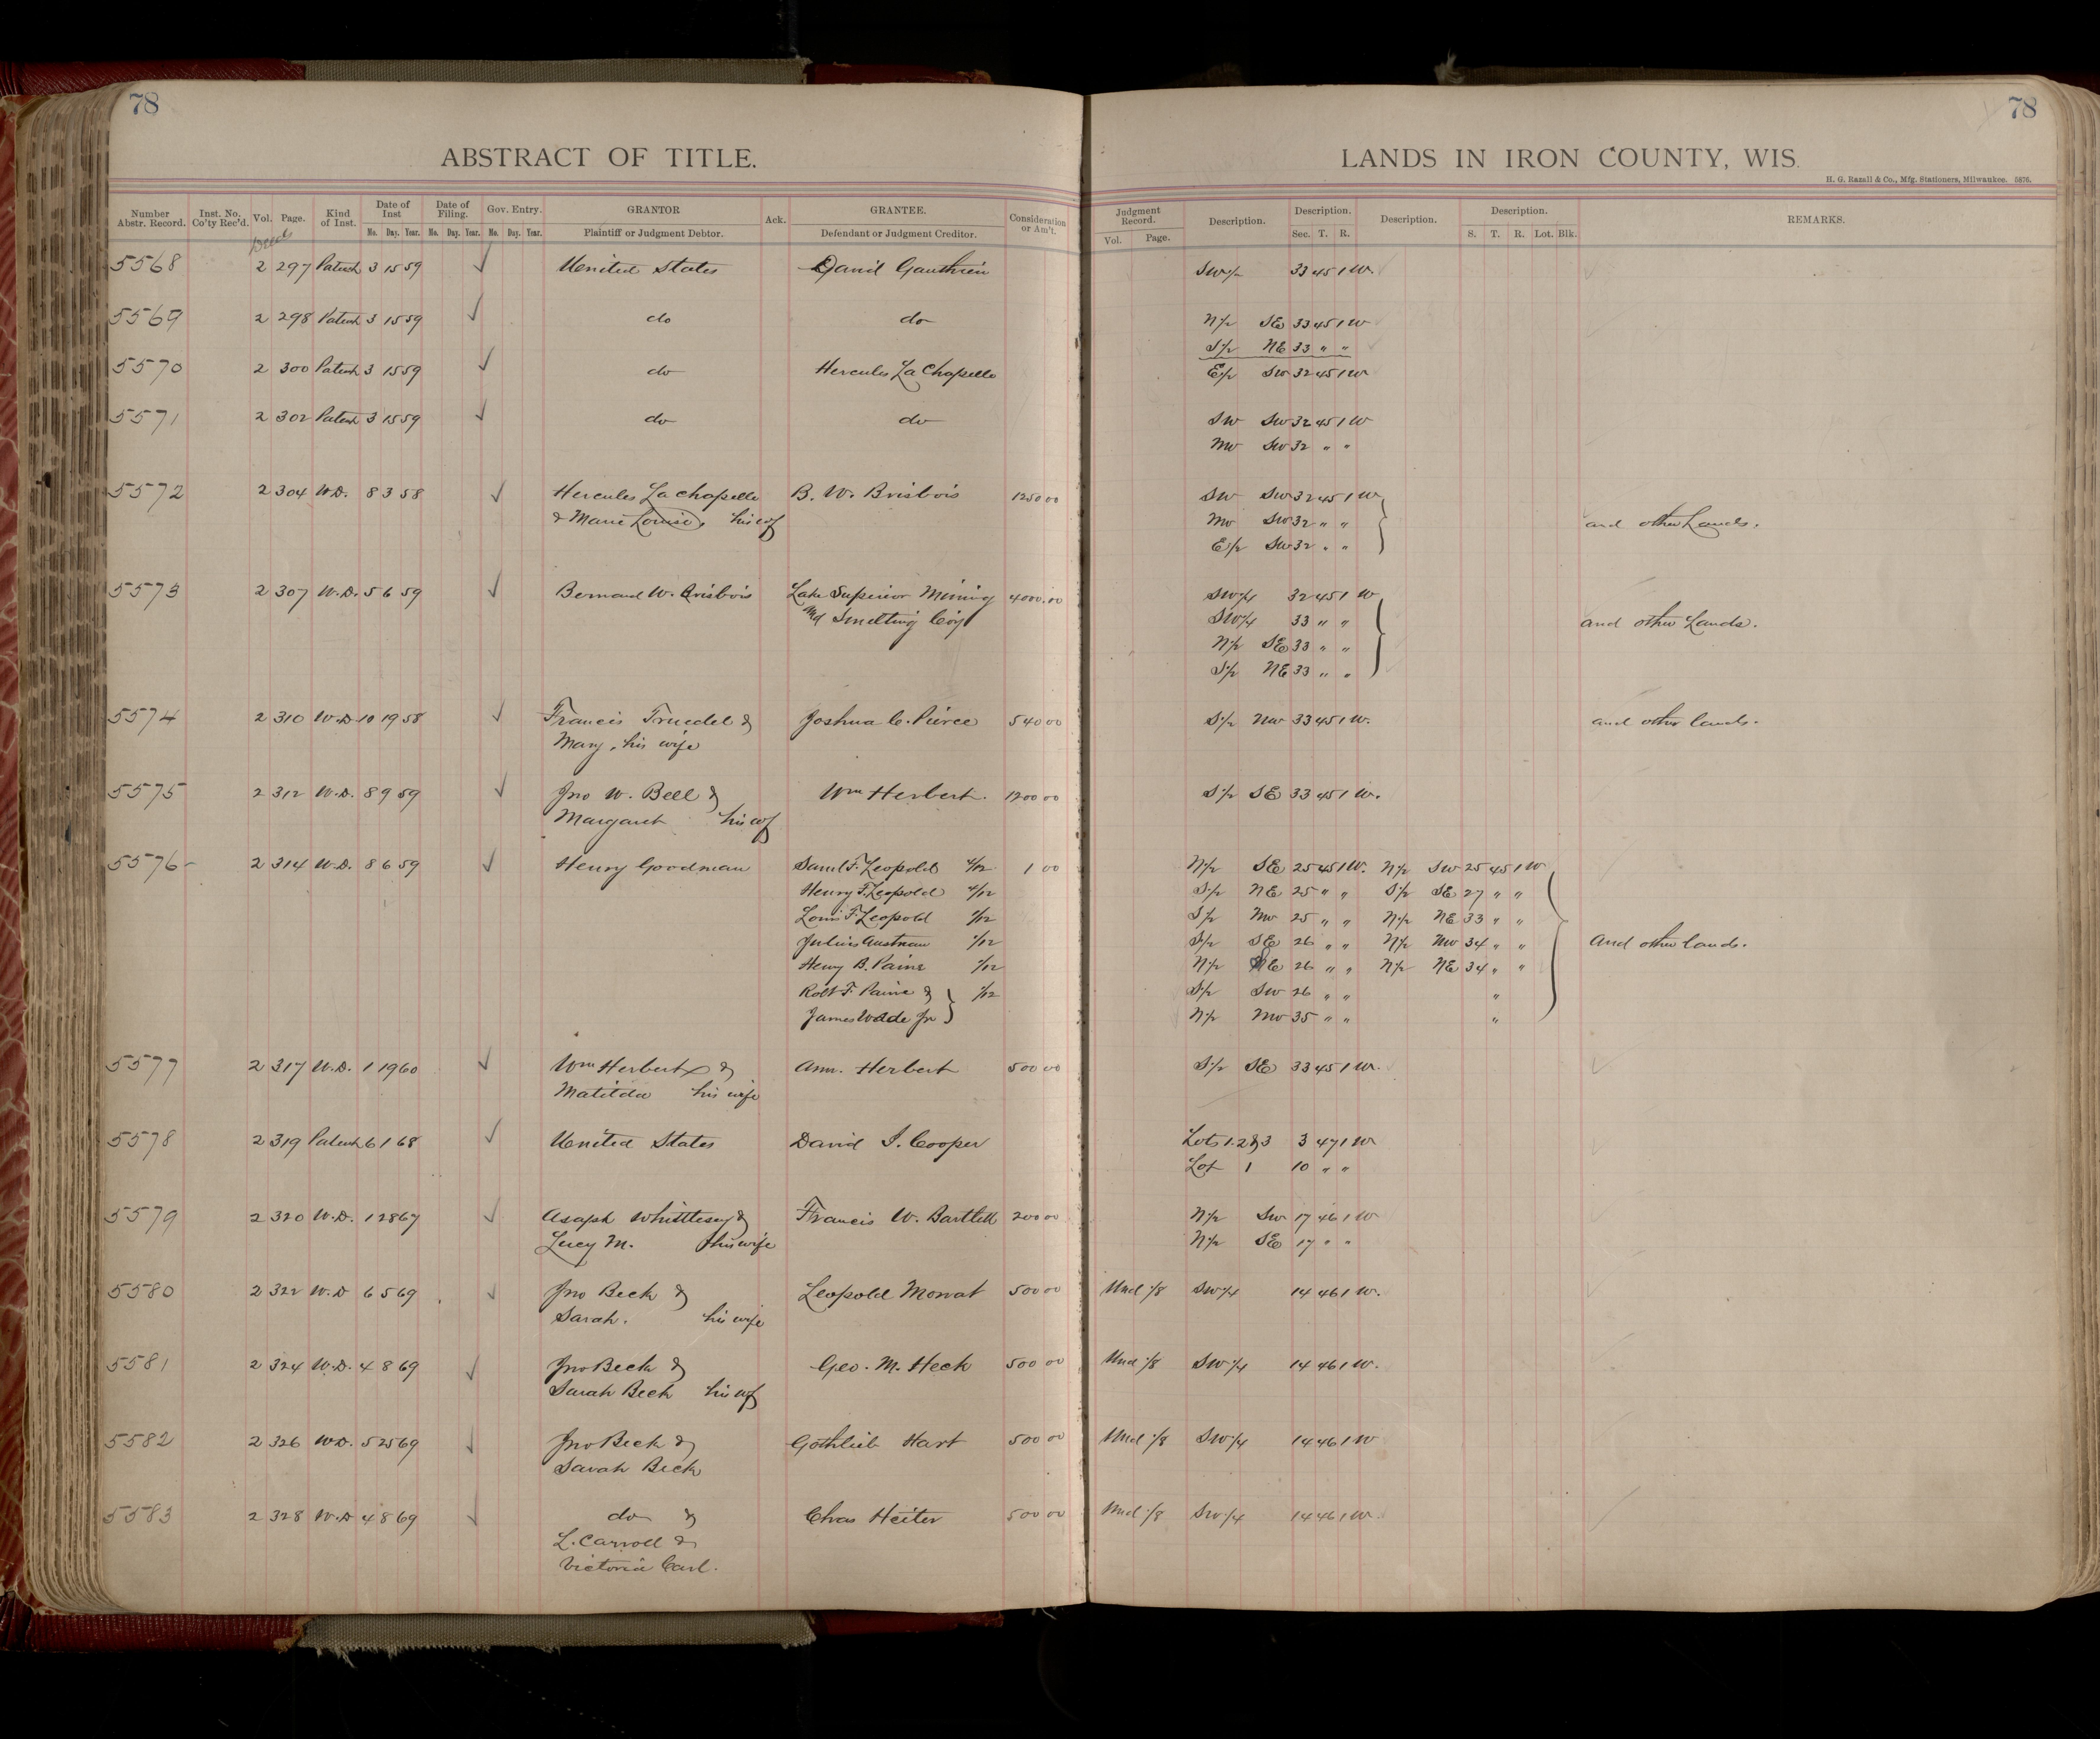 78
78
ABSTRACT OF TITLE.
LANDS IN IRON COUNTY, WIS.
H. G. Razall & Co., Mfg. Stationers, Milwaukee. 5876.
Number Abstr. Record. Inst. No. Co'ty Rec'd. Vol. Page. Kind of Inst. Date of Inst Mo. Day. Year. Date of Filing. Mo. Day. Year. Gov. Entry. Mo. Day. Year. GRANTOR Plaintiff or Judgment Debtor. Ack. GRANTEE. Defendant or Judgment Creditor. Consideration or Am't. Judgment Record. Vol. Page. Description. Description. Sec. T. R. Description. Description. S. T. R. Lot. Blk. REMARKS.
Deeds
5568 2 297 Patent 3 15 59 ✓ United States David Gauthrier SW 1/4 33 45 1 W.
5569 2 298 Patent 3 15 59 ✓ do do N 1/2 SE 33 45 1 W
S 1/2 NE 33 " "
5570 2 300 Patent 3 15 59 ✓ do Hercules La Chapelle E 1/2 SW 32 45 1 W
5571 2 302 Patent 3 15 59 ✓ do do SW SW 32 45 1 W
NW SW 32 " "
5572 2 304 W.D. 8 3 58 ✓ Hercules La Chapelle B. W. Brisbois 1250 00 SW SW 32 45 1 W
& Marie Louise, his wf NW SW 32 " " and other Lands.
E 1/2 SW 32 " "
5573 2 307 W.D. 5 6 59 ✓ Bernard W. Brisbois Lake Superior Mining 4000.00 SW 1/4 32 45 1 W
and Smelting Coy SW 1/4 33 " " and other Lands.
N 1/2 SE 33 " "
S 1/2 NE 33 " "
5574 2 310 W.D. 10 19 58 ✓ Francis Truedel & Joshua C. Pierce 540 00 S 1/2 NW 33 45 1 W. and other lands.
Mary, his wife
5575 2 312 W.D. 8 9 59 ✓ Jno W. Bell & Wm Herbert. 1200 00 S 1/2 SE 33 45 1 W.
Margaret his wf
5576 - 2 314 W.D. 8 6 59 ✓ Henry Goodman Saml F. Leopold 4/12 1 00 N 1/2 SE 25 45 1 W. N 1/2 SW 25 45 1 W
Henry F. Leopold 4/12 S 1/2 NE 25 " " S 1/2 SE 27 " "
Louis F. Leopold /12 S 1/2 NW 25 " " N 1/2 NE 33 " "
Julius Austrian 1/12 S 1/2 SE 26 " " N 1/2 NW 34 " " And other lands.
Henry B. Paine /12 N 1/2 NE 26 " " N 1/2 NE 34 " "
Robt F. Paine & 1/12 S 1/2 SW 26 " " "
James Wade Jr N 1/2 NW 35 " " "
5577 2 317 W.D. 1 19 60 ✓ Wm Herbert & Ann. Herbert 500 00 S 1/2 SE 33 45 1 W.
Matilda his wife
5578 2 319 Patent 6 1 68 ✓ United States David S. Cooper Lots 1. 2 & 3 3 47 1 W
Lot 1 10 " "
5579 2 320 W.D. 1 28 67 ✓ Asaph Whittlesey & Francis W. Bartlett 200 00 N 1/2 SW 17 46 1 W
Lucy M. his wife N 1/2 SE 17 " "
5580 2 322 W.D 6 5 69 ✓ Jno Beck & Leopold Morvat 500 00 Und 1/8 SW 1/4 14 46 1 W.
Sarah. his wife
5581 2 324 W.D. 4 8 69 ✓ Jno Beck & Geo. M. Heck 500 00 Und 1/8 SW 1/4 14 46 1 W.
Sarah Beck his wf
5582 2 326 W.D. 5 25 69 ✓ Jno Beck & Gothlieb Hart 500 00 Und 1/8 SW 1/4 14 46 1 W
Sarah Beck
5583 2 328 W.D 4 8 69 ✓ do & Chas Heiter 500 00 Und 1/8 SW 1/4 14 46 1 W.
L. Carroll &
Victoria Carl.